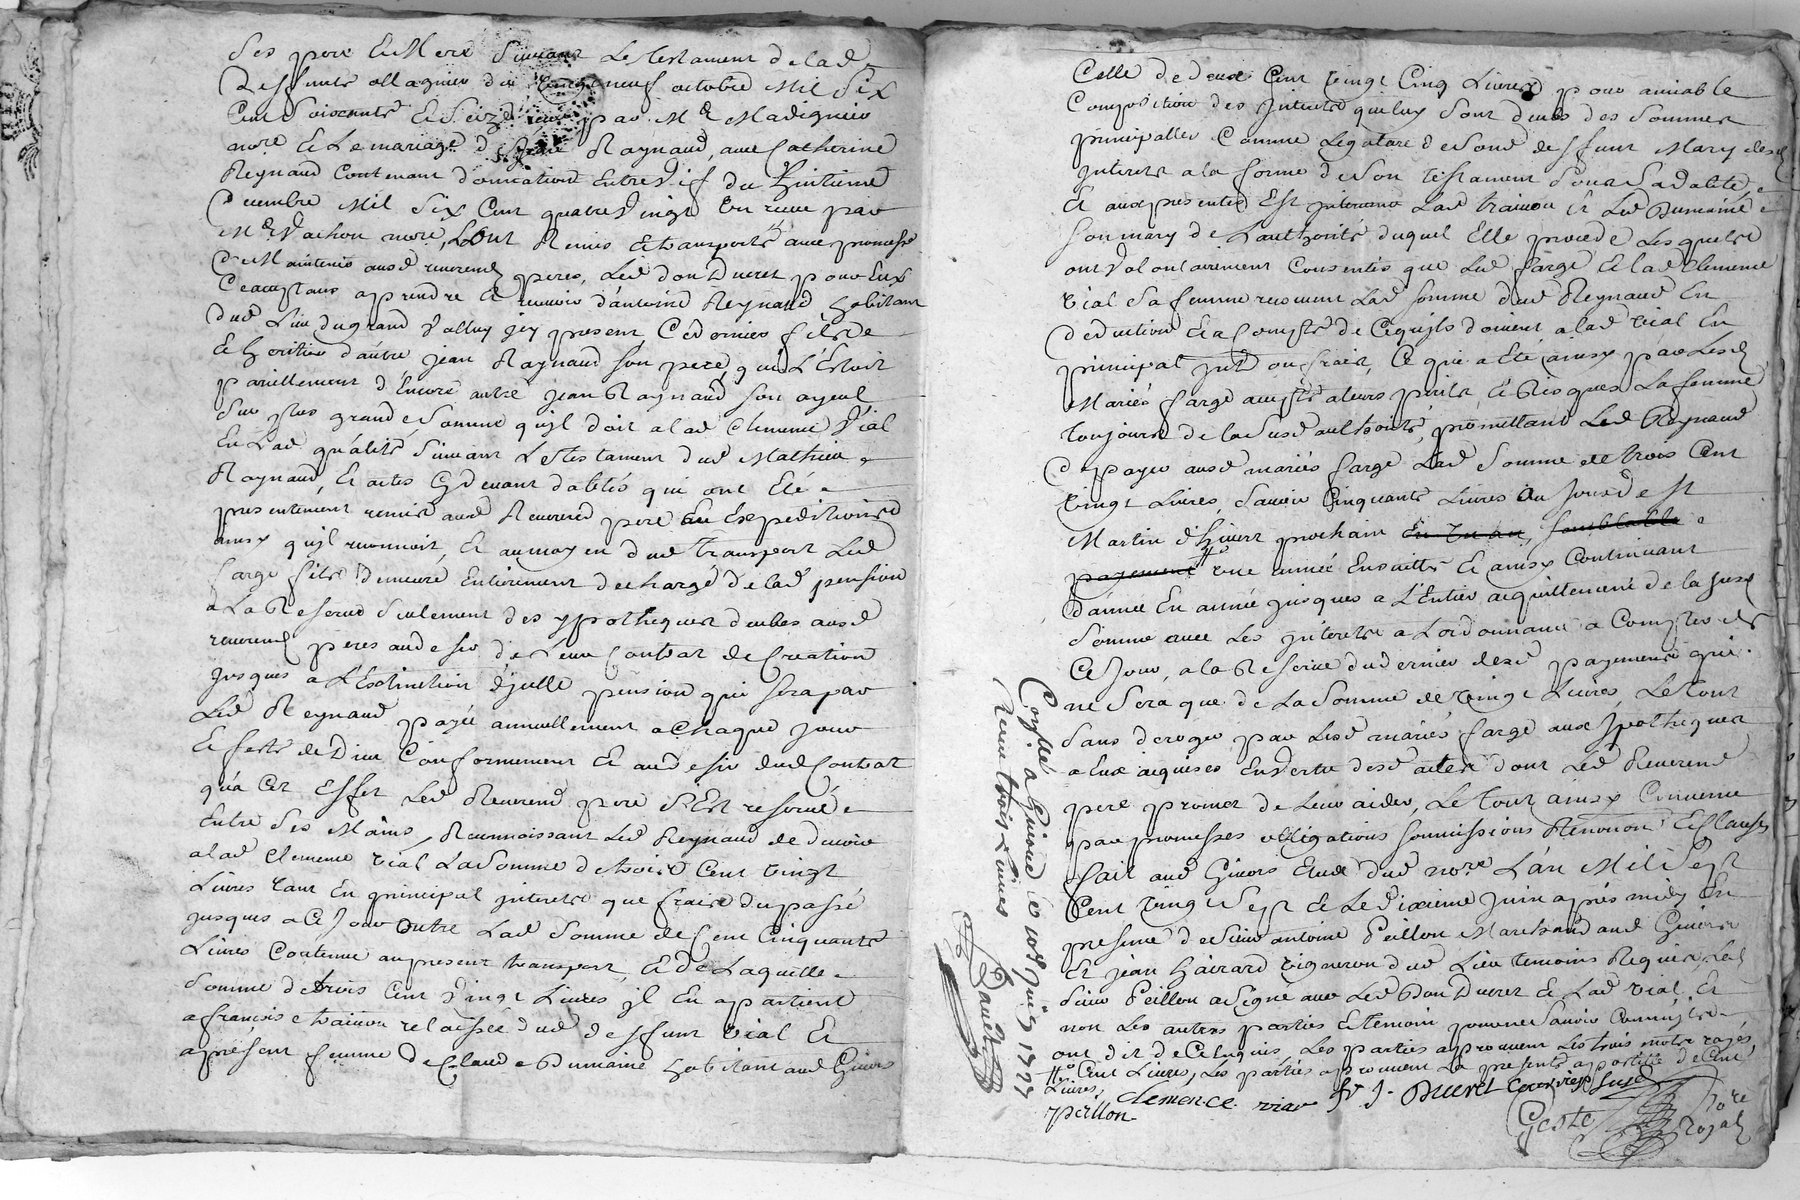 ses pere et Mere suivant Le testament de lad
deffunte ollagnier du vingt neuf octobre Mil Six
Cent Soixante et Seize par Me Madignier
nore et Le mariage Raynaud, avec Catherine
Reynaud Contenant donnation entre vif du huitieme
decembre Mil Six Cent quatre Vingt Un receu par
Me Vachon nore, Lont Remis et transporté avec promesse
de Maintenir ausd reverend peres, Led don Ducret pour Eux
acceptans aprendre et recevoir d'antoine Reynaud habitant
dud Lieu du grand Valluy jcy present, Ce dernier fils
et heritier d'autre jean Raynaud son pere, qui L'Estoit
pareillement d'Encore autre jean Raynaud son ayeul
Sur plus grande somme qu'jl doit a lad Clemence Vial
En Lad qualité, suivant Le testament dud Mathieu
Raynaud, et actes Cy devant datés qui ont Eté
presentement remis aud Reverend pere En Expeditions
ainsy qu'jl reconnoit, et au moyen dud transport Led
farge fils demeure Entierement dechargé de lad pension
a La Reserve Seulement des ypotheques deubes ausd
reverend peres au desir de Leur Contrat de Creation
jusques a L'Extinction d'jcelle pension qui sera par
Led Reynaud payée annuellement a Chaque jour
et feste de Dieu Conformement et au desir dud Contrat
qu'a Cet Effet Led Reverend pere s'Est reservé
Entre Ses Mains, Reconnoissant Led Reynaud de devoir
a lad Clemence vial La Somme de trois Cent vingt
Livres tant En principal jnterets que frais du passé
jusques a Ce Jour outre Lad Somme de Cent Cinquante
Livres Contenue au present transport, et de Laquelle
Somme de trois Cent Vingt Livres jl En apartient
a francoise trainon relaissée dud deffunt vial et
apresent femme de Claude Dumaine habitant aud Givors
Celle de deux Cent vingt Cinq Livres pour amiable
Composition des jnterets quelux Sont deubs des Sommes
principalles Comme Legatare de Sond deffunt Mary desd
jnterets a la forme de Son testament Sous Sa datte,
Et aux presentes Est intervenue Lad trainon et Led Dumaine
Son mary de Lauthorité duquel Elle procede Lesquels
ont Volontairement Consentis que Led farge et lad Clemence
vial Sa femme recoivent Lad Somme dud Reynaud En
deduction et a Compte de Ce qu'jls doivent a lad vial En
principal jnts ou frais, Ce qui a Eté ainsy par Lesd
Mariés farge accepté a leurs perils et Risques La femme
toujours de la Susd authorité, promettant Led Reynaud
de payer ausd mariés farge Lad Somme de trois Cent
vingt Livres, Savoir Cinquante Livres au Jour de St
Martin d'hivert prochain en un an, semblable
payement une année Ensuitte et ainsy Continuant
d'année En année jusques a L'Entier acquittement de la Susd
Somme avec Les jnterets a Lordonnance a Compter de
Ce Jour, a la Reserve du dernier desd payements qui
ne Sera que de La Somme de vingt Livres, Le tout
Sans deroger par Lesd mariés farge aux jpotheques
a Eux acquises En vertu desd actes dont Led Reverend
pere promet de Leur aider, Le tout ainsy Convenu
par promesses obligations Soumissions Renonon et Clauses
fait aud Givors Etude dud nore L'an Mil Sept
Cent vingt Sept et Le dixieme juin apres midy En
presence de Sieur antoine Peillon Marchand aud Givors
Et jean hairard vigneron dud Lieu temoins Requis, Led
Sieur Peillon a Signe avec Led Don Ducret et Lad vial, Et
non Les autres parties et temoin pour ne Savoir Comme jls
ont dit de Ce Enquis, Les parties approuvent Les trois motes rayés,
Cent Livres, Les parties approuvent La presente apostille de Cent
Livres,
Clemence viau fr J. Ducret
peillon
Geste Nore
Royal
Conllé a Givord le 10e Juin 1727
Receu trois Livres